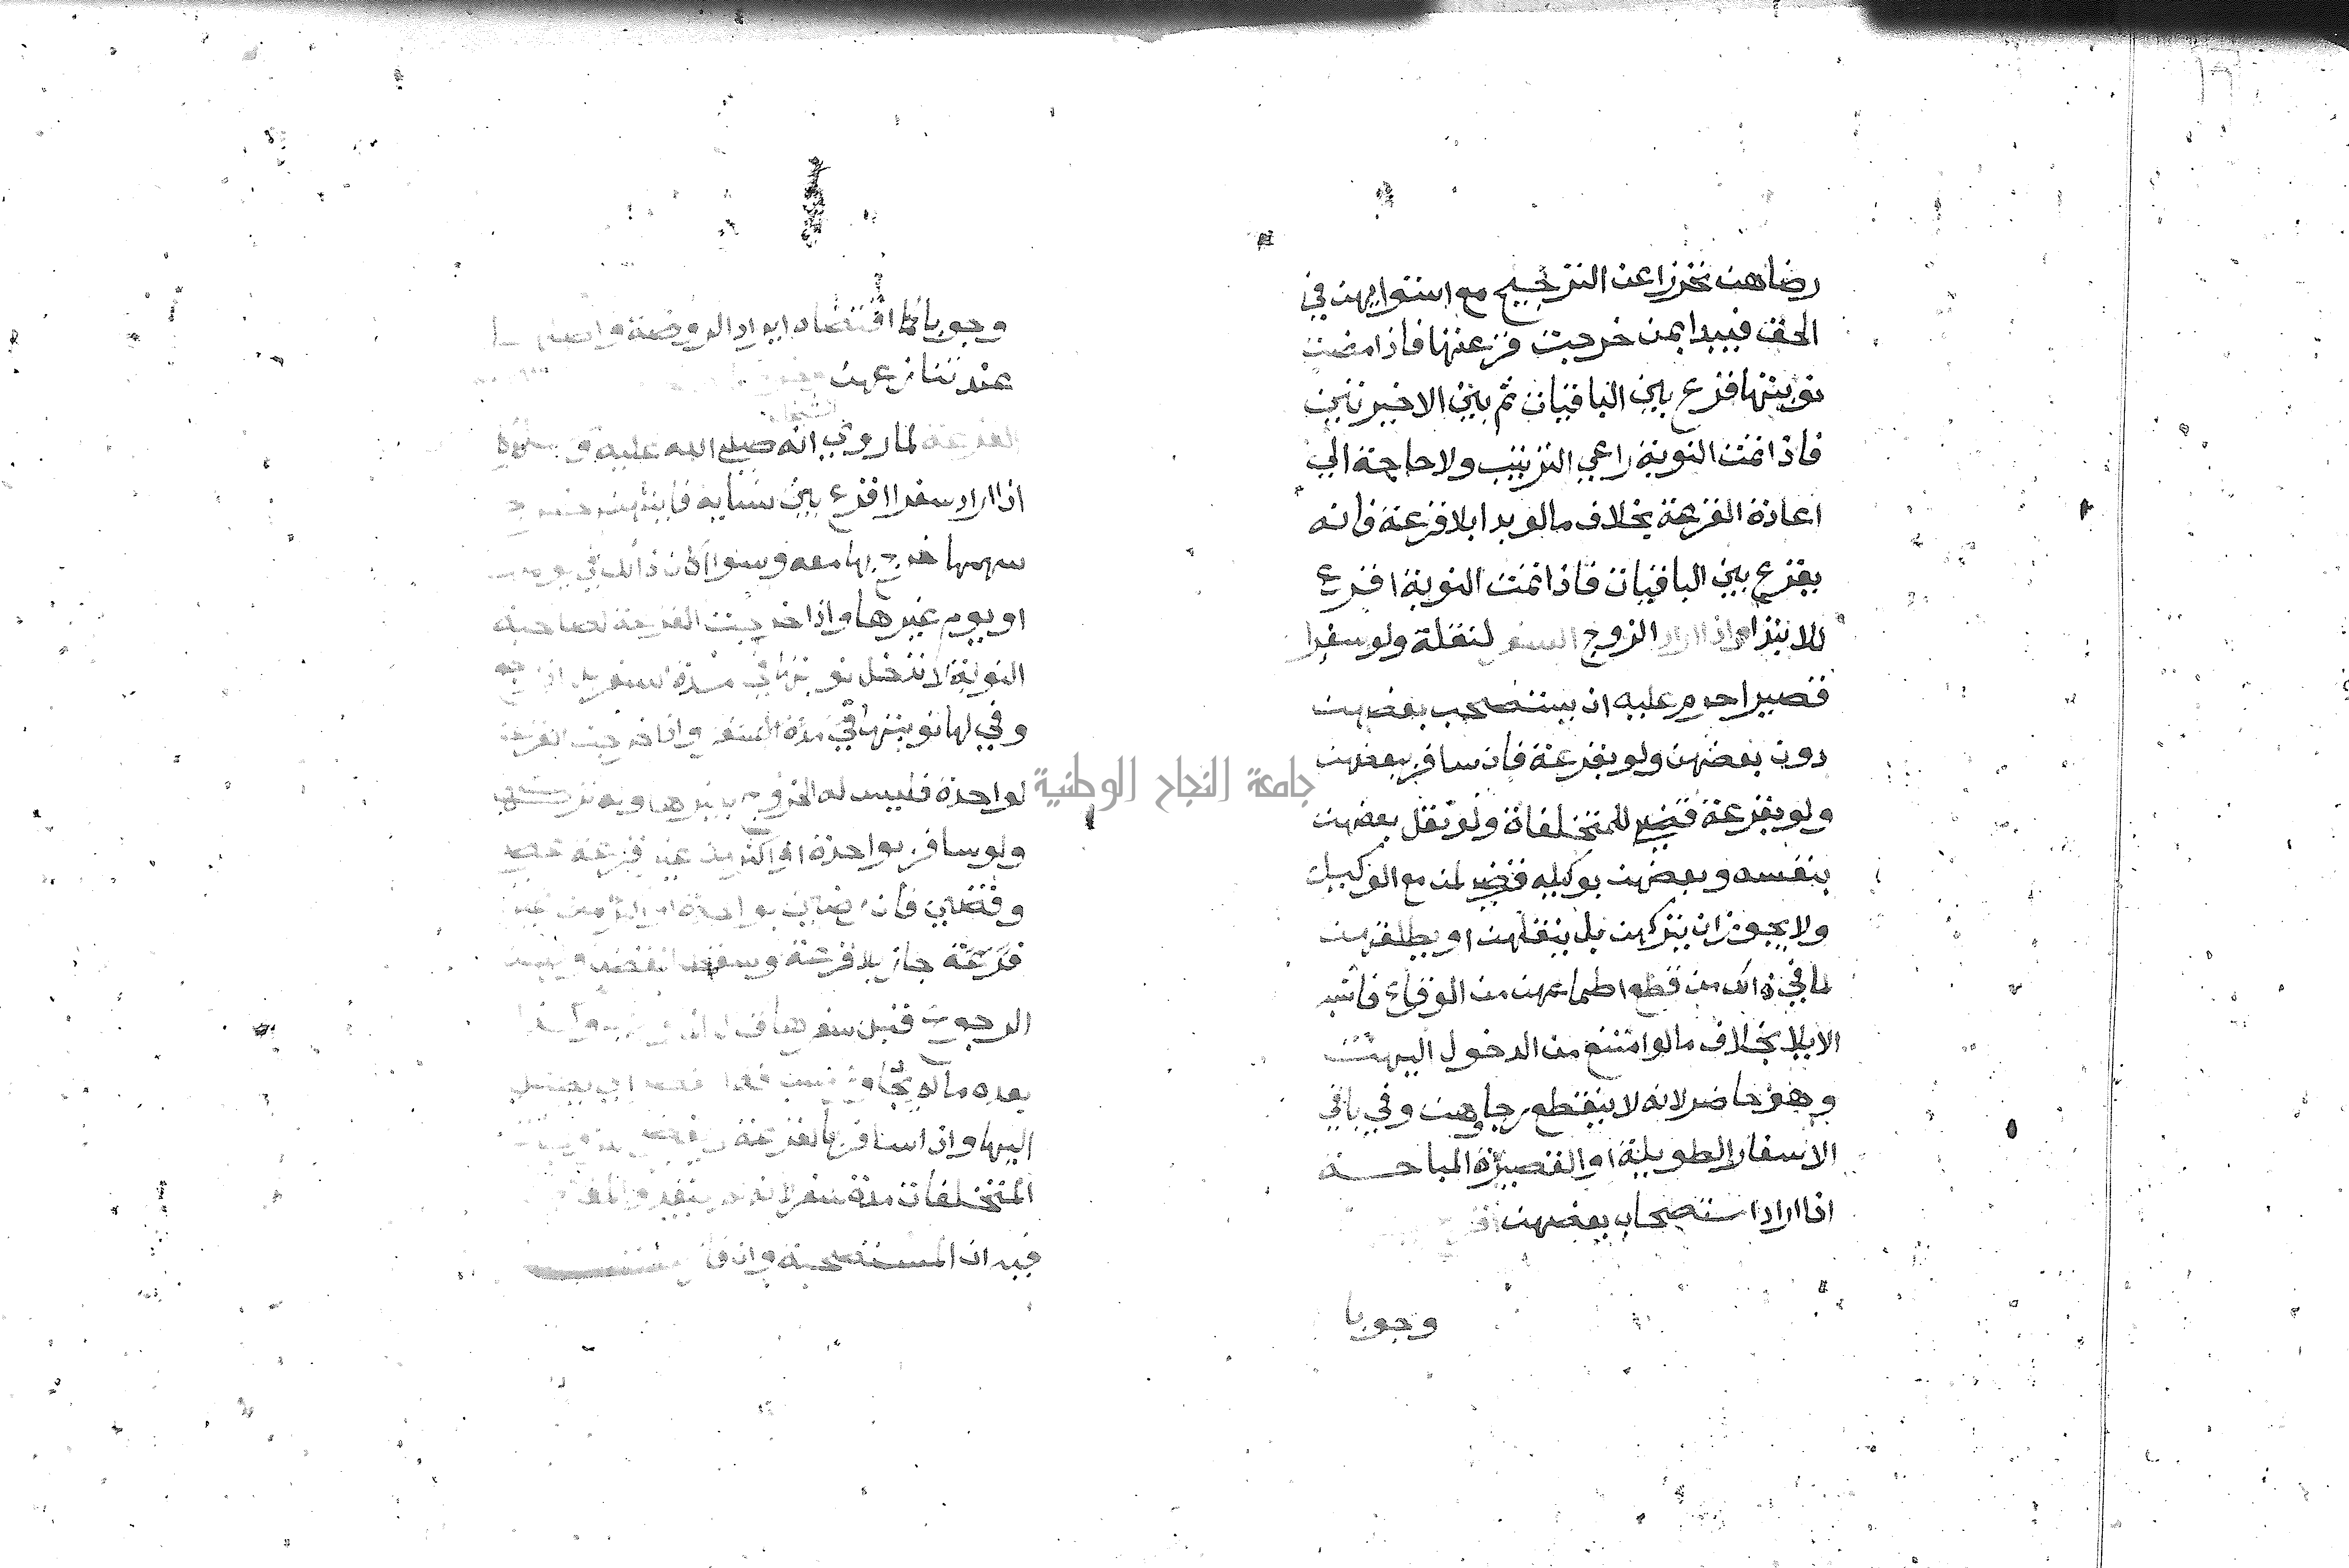 رضاهن تحرزا عن الترجيح مع استوايهن في
الحق فيبدا بمن خرجت قرعتها فاذا مضت
نوبتها اقرع بين الباقيات ثم بين الاخيرتين
فاذا تمت النوبة راعي الترتيب ولا حاجة الي
اعادة القرعة بخلاف ما لو بدا بلا قرعة فانه
يقرع بين الباقيات فاذا تمت النوبة اقرع
للابتدا واذا اراد الزوج السفر لنقلة ولو سفرا
قصيرا حرم عليه ان يستصحب بعضهن
دون بعضهن ولو بقرعة فان سافر ببعضهن
ولو بقرعة قضي للمتخلفاة ولو نقل بعضهن
بنفسه وبعضهن بوكيله قضي لمن مع الوكيل
ولا يجوز ان يتركهن بل ينقلهن او يطلقهن
لما في ذالك من قطع اطماعهن من الوقاع فاشبه
الايلا بخلاف ما لو امتنع من الدخول اليهن
وهو حاضر لانه لا ينقطع رجاوهن وفي باقي
الاسفار الطويلة او القصيرة المباحة
اذا اراد استصحاب بعضهن اقرع
وجوبا
وجوبا كما اقتضاه ايراد الروضة واصلها
عند تنازعهن
القرعة لما روي الشيخان انه صلي الله عليه وسلم كان
اذا اراد سفرا اقرع بين نسايه فايتهن خرج
سهمها خرج بها معه وسوا اكان ذالك في يومها
او يوم غيرها واذا خرجت القرعة لصاحبة
النوبة لا تدخل نوبتها في مدة السفر بل اذا رجع
وفي لها نوبتها في مدة السفر واذا خرجت القرعة
لواحدة فليس له الخروج بغيرها وله تركها
ولو سافر بواحدة او اكثر من غير قرعة عصي
وقضي فان رضين بواحدة او اكثر من غير
قرعة جاز بلا قرعة وسقط القضا ولهن
الرجوع قبل سفرها قال
بعده ما لم يجاوز مسافة القصر اي يصل
اليها واذا سافر بالقرعة لا يقضي للزوجات
المتخلفات مدة سفر لانه لم يتعد والمعني
فيه ان المستصحبة وان فازت
جامعة النجاح الوطنية